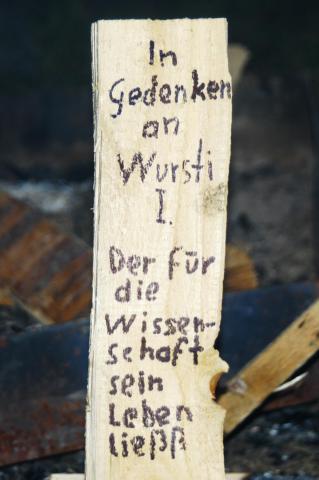 In
Gedenken
an
Wursti
I.
Der für
die
Wissen-
schaft
sein
Leben
ließß